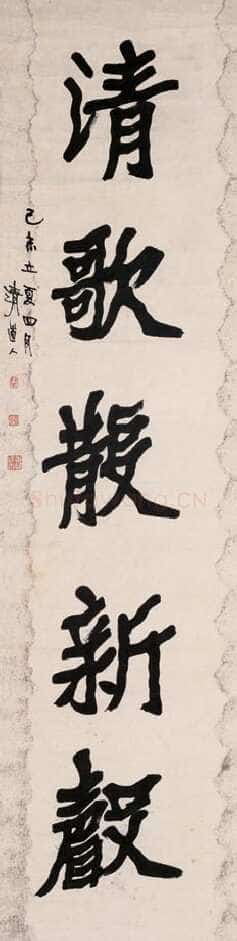 清歌散新聲
己未立夏四月
清道人